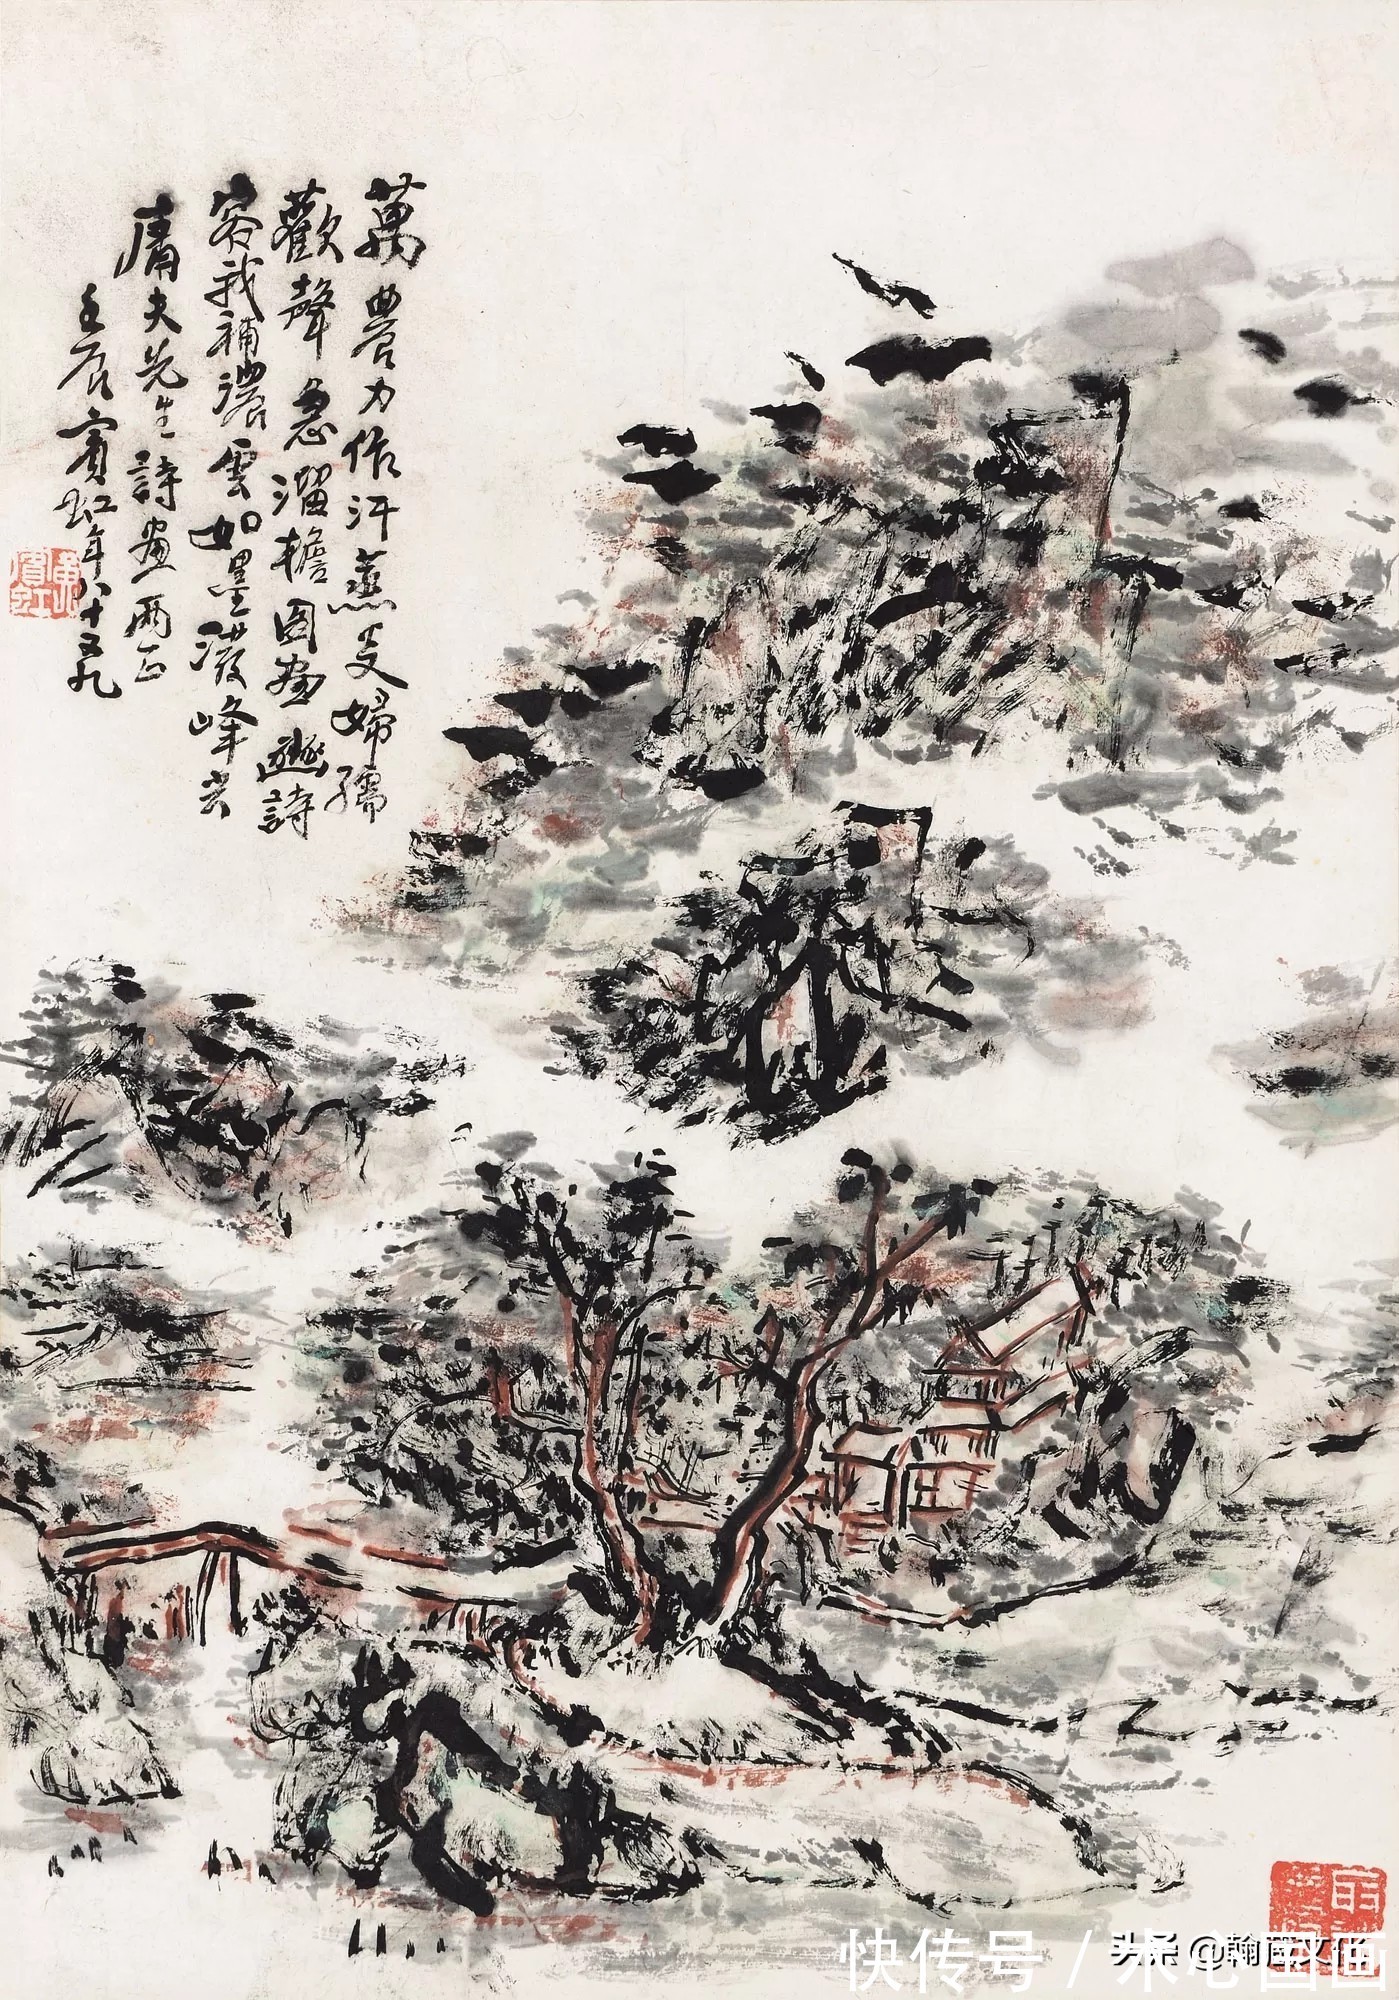 萬農力作汗蒸炎婦孺
歡聲急溜檐圖畫邀詩
容我補濃雲如墨潑峰尖
庸夫先生詩畫兩正
壬辰賓虹年八十又九
黃賓虹
快传号 / 木心国画
头条 @翰